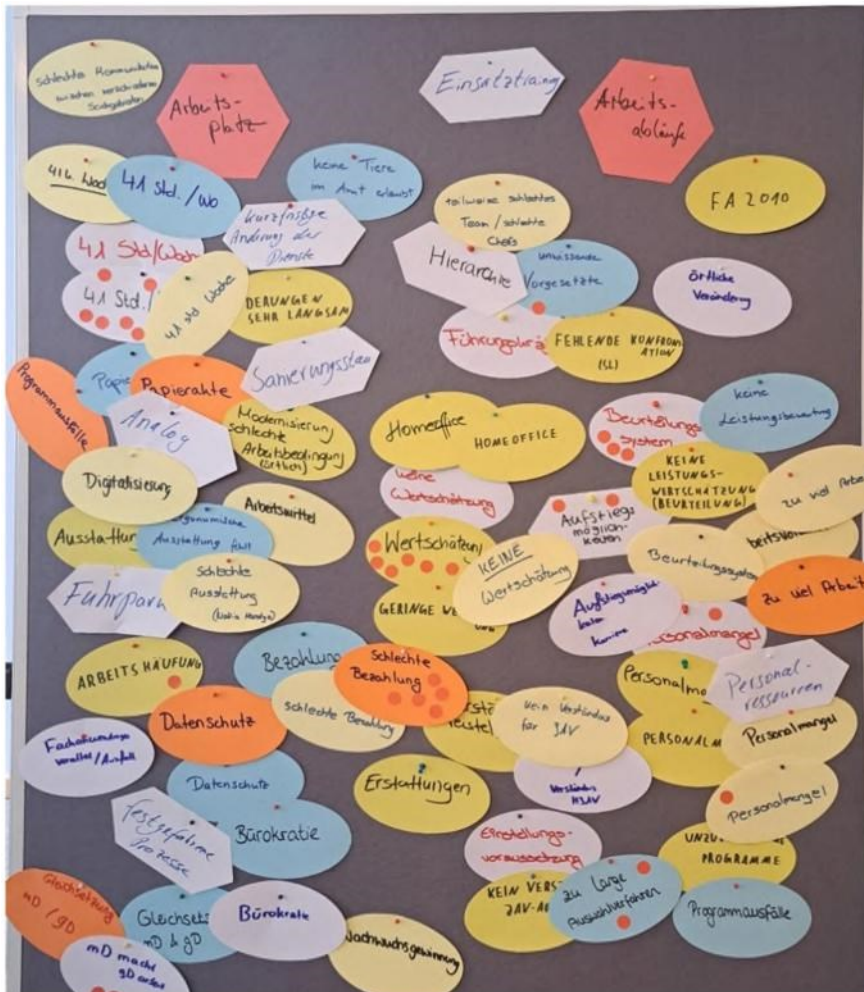 schlechte Kommunikation
zwischen verschiedenen
Sachgebieten
Arbeits-
platz
Einsatztraining
Arbeits-
abläufe
41 h. Woch
41 Std. / Wo
keine Tiere
im Amt erlaubt
teilweise schlechtes
Team / schlechte
Chefs
FA 2010
kurzfristige
Änderung der
Dienste
41 Std/Woch
Hierarchie
unwissende
Vorgesetzte
örtliche
Veränderung
41 Std.
41 std Woche
DERUNGEN
SEHR LANGSAM
Führungskrä
FEHLENDE KONFRONT
ATION
(SL)
Programmausfälle
Papie
Papierakte
Sanierungsstau
Analog
Modernisierung
schlechte
Arbeitsbedingung
(örtlich)
Homeoffice
HOMEOFFICE
Beurteilungs
system
keine
Leistungsbewertung
Digitalisierung
keine
Wertschätzung
KEINE
LEISTUNGS-
WERTSCHÄTZUNG
(BEURTEILUNG)
zu viel Arbei
Arbeitsmittel
Ausstattun
ergonomische
Ausstattung fehlt
Aufstiegs
möglich-
keiten
Wertschätzun
KEINE
Wertschätzung
Beurteilungssystem
Fuhrpark
schlechte
Ausstattung
(Nokia Handys)
GERINGE WE
Aufstiegsmöglich
keiten
kaum
zu viel Arbeit
Personalmangel
ARBEITSHÄUFUNG
Bezahlung
schlechte
Bezahlung
Personalma
Personal-
ressourcen
Datenschutz
schlechte Bezahlung
kein Verständnis
für JAV
PERSONALM
Personalmangel
veraltet / Ausfall
Datenschutz
Erstattungen
Verständnis
Personalmangel
festgefahrene
Prozesse
Bürokratie
Einstellungs-
voraussetzung
PROGRAMME
Gleichsetzung
mD / gD
Gleichsetz
mD & gD
Bürokratie
KEIN VERS
JAV-A
zu lange
Auswahlverfahren
Programmausfälle
mD macht
gD arbeit
Nachwuchsgewinnung